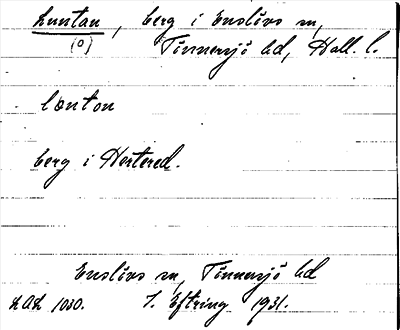 Luntan, berg i Enslövs sn,
(o) Tönnersjö hd, Hall. l.
lo̤nton
berg i Hertered.
Enslövs sn, Tönnersjö hd
LAL 1030. J. Eftring 1931.